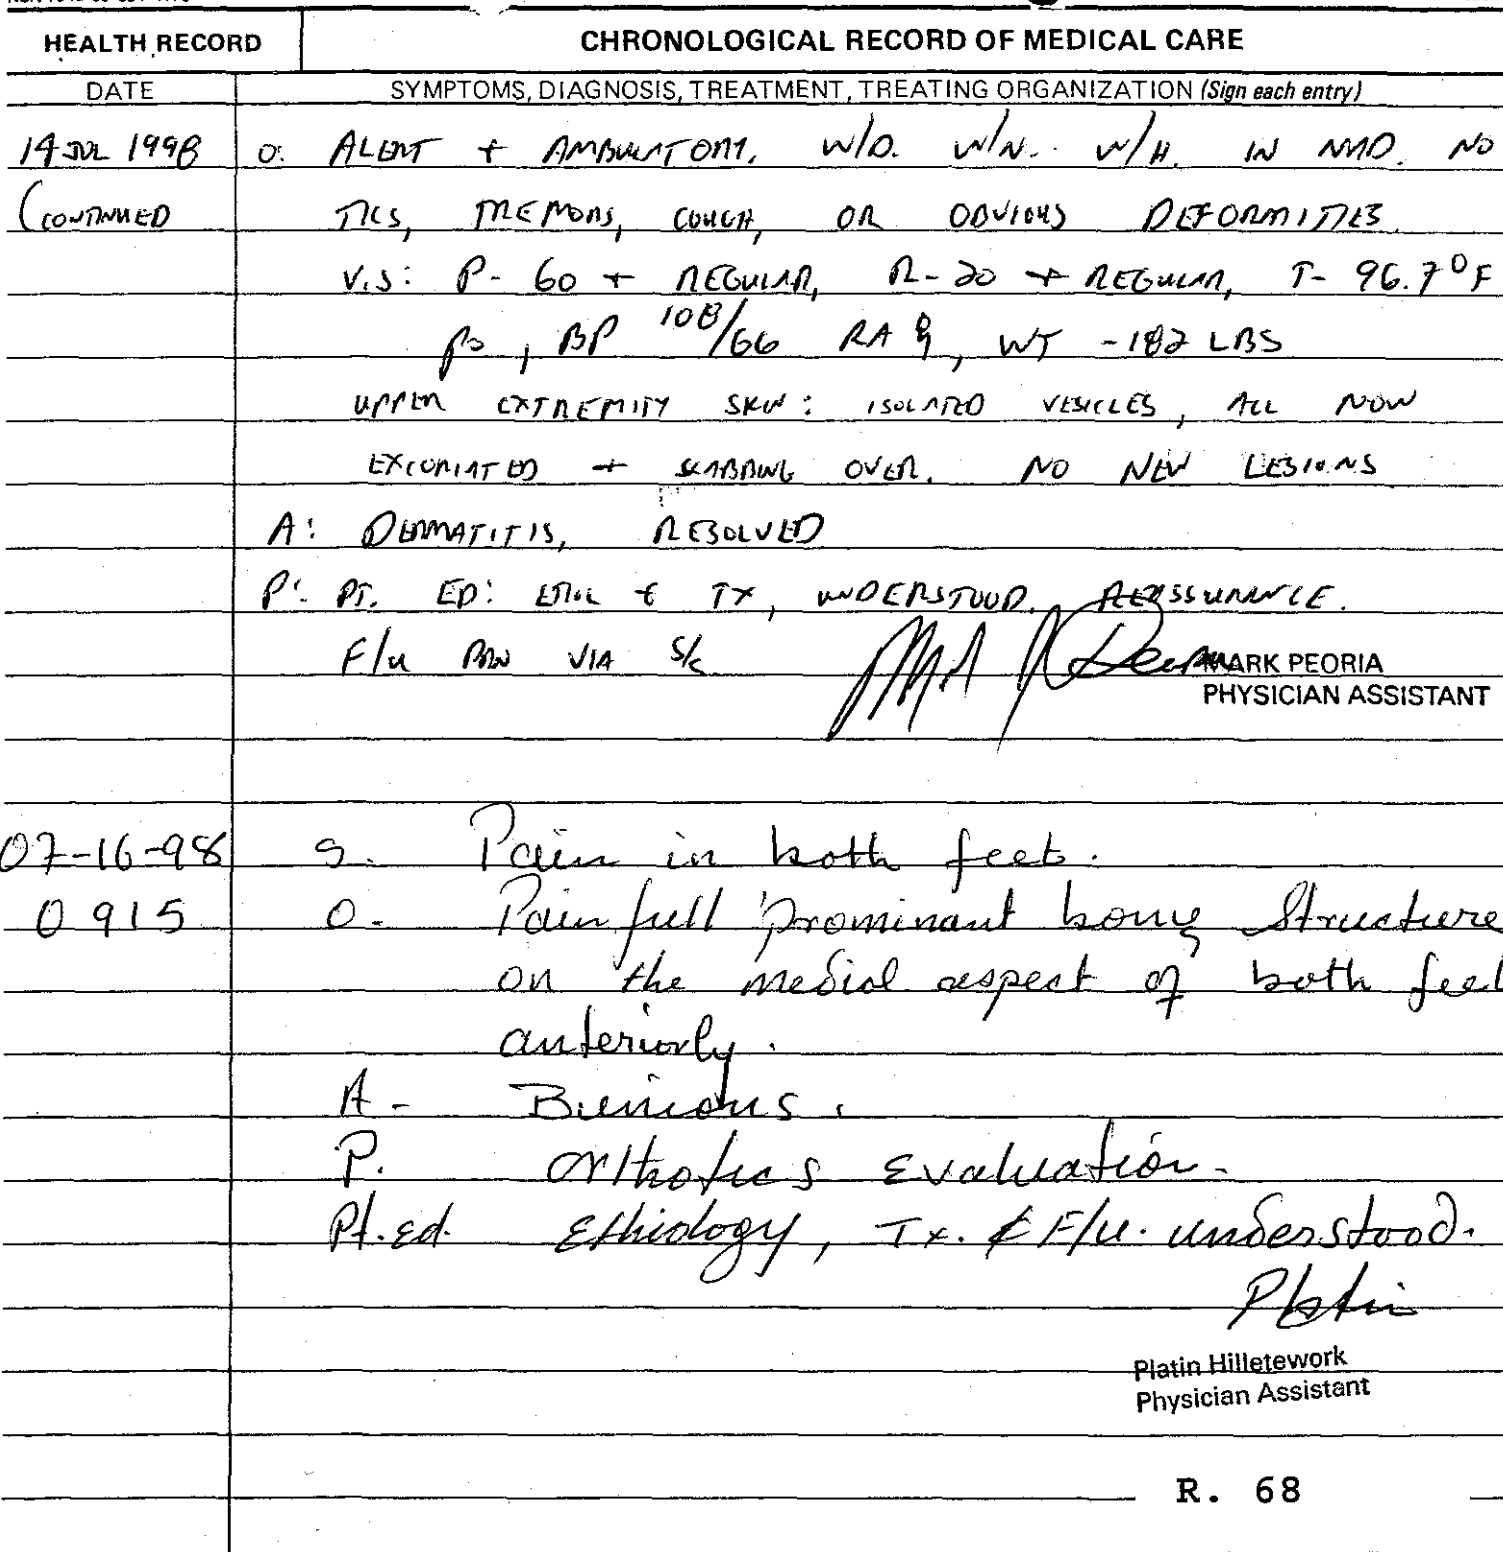 HEALTH RECORD
CHRONOLOGICAL RECORD OF MEDICAL CARE
DATE
SYMPTOMS, DIAGNOSIS, TREATMENT, TREATING ORGANIZATION (Sign each entry)
14 JUL 1998 O: ALERT + AMBULATORY. W/D. W/N. W/H. IN NAD. NO
(CONTINUED TICS, TREMORS, COUGH, OR OBVIOUS DEFORMITIES.
V.S: P- 60 + REGULAR, R- 20 + REGULAR, T- 96.7°F
po, BP 108/66 RA, WT - 182 LBS
UPPER EXTREMITY SKIN: ISOLATED VESICLES, ALL NOW
EXCORIATED + SCABBING OVER. NO NEW LESIONS
A: DERMATITIS, RESOLVED
P: PT. ED: ETIOL & TX, UNDERSTOOD. REASSURANCE.
F/U PRN VIA S/C
MARK PEORIA
PHYSICIAN ASSISTANT
07-16-98 S. Pain in both feet.
0915 O. Painfull prominant bony Structure
on the medial aspect of both feet
anteriorly.
A- Bunions.
P. Orthotics Evaluation.
Pt. Ed. Ethiology, Tx. & F/U. understood.
Platin
Platin Hilletework
Physician Assistant
R. 68